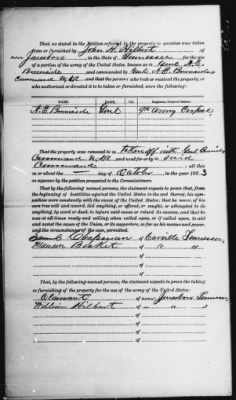 That, as stated in the Petition referred to, property in question was taken
from or furnished by John H. Hilbert of
near Jonesboro in the State of Tennessee, for the use
of a portion of the army of the United States, known as Genl A. E.
Burnside and commanded by Genl A. E. Burnsides
Command U.S.A and that the persons who took or received the property, or who
authorized or directed it to be taken or furnished, were the following:
NAME. RANK.
A. E. Burnside Genl 9th Army Corps
That the property was removed to
Command U.S.A and used for or by said
Command ; all this
on or about the — day of October, in the year 1863
as appears by the petition presented to the Commissioners.
That by the following named persons, the claimant expects to prove that, from the
beginning of hostilities against the United States to the end thereof, his sympathies
were constantly with the cause of the United States; that he never, of his
own free will and accord, did anything, or offered, or sought, or attempted to do
anything, by word or deed, to injure said cause or retard its success, and that he
was at all times ready and willing, when called upon, or if called upon, to aid
and assist the cause of the Union, or its supporters, so far as his means and power,
and the circumstances of the case, permitted:
Chapman of Tennessee
of " "
That by the following named persons, the claimant expects to prove the taking
or furnishing of the property for the use of the army of the United States:
Claimant of near Jonesboro Tennessee
William Hilbert of " " "